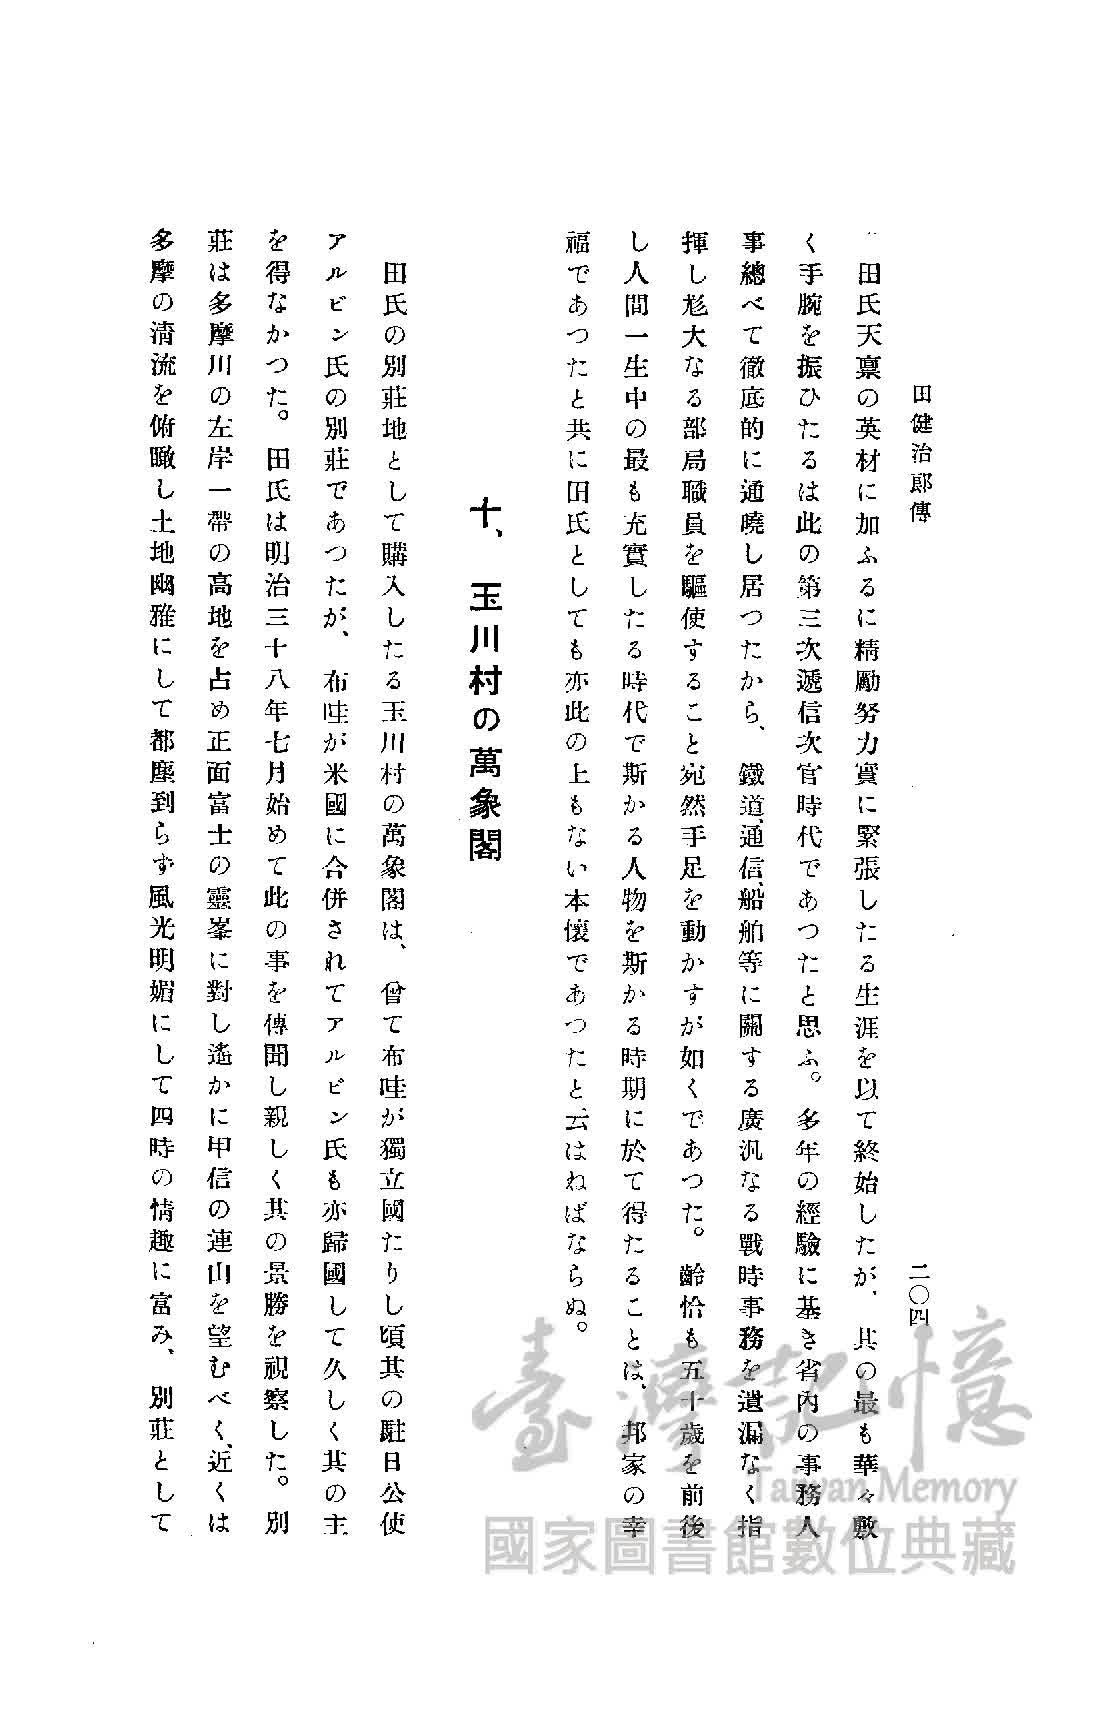 田健治郎傳
二〇四
田氏天禀の英材に加ふるに精勵努力實に緊張したる生涯を以て終始したが、其の最も華々敷
く手腕を振ひたるは此の第三次遞信次官時代であつたと思ふ。多年の經驗に基き省內の事務人
事總べて徹底的に通曉し居つたから、鐵道、通信、船舶等に關する廣汎なる戰時事務を遺漏なく指
揮し尨大なる部局職員を驅使すること宛然手足を動かすが如くであつた。齡恰も五十歲を前後
し人間一生中の最も充實したる時代で斯かる人物を斯かる時期に於て得たることは、邦家の幸
福であつたと共に田氏としても亦此の上もない本懷であつたと云はねばならぬ。
十、玉川村の萬象閣
田氏の別莊地として購入したる玉川村の萬象閣は、曾て布哇が獨立國たりし頃其の駐日公使
アルビン氏の別莊であつたが、布哇が米國に合併されてアルビン氏も亦歸國して久しく其の主
を得なかつた。田氏は明治三十八年七月始めて此の事を傳聞し親しく其の景勝を視察した。別
莊は多摩川の左岸一帶の高地を占め正面富士の靈峯に對し遙かに甲信の連山を望むべく、近くは
多摩の淸流を俯瞰し土地幽雅にして都塵到らず風光明媚にして四時の情趣に富み、別莊として
臺灣記憶
Taiwan Memory
國家圖書館數位典藏